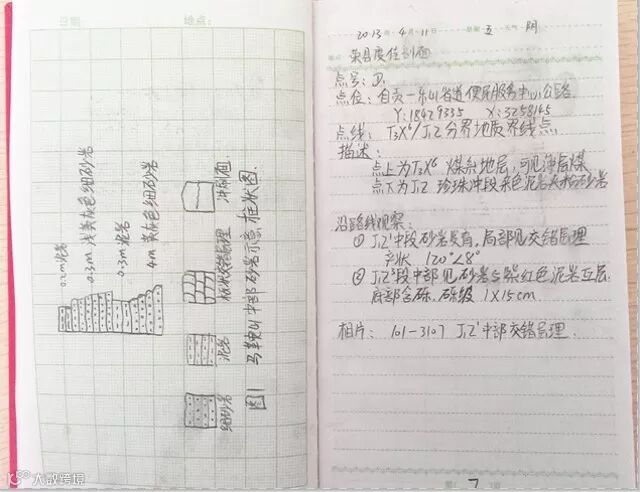 日期 地点:
0.2m泥岩
0.3m 浅黄灰色细砂岩
0.3m泥岩
4m 黄灰色细砂岩
冲刷面
板状交错层理
泥岩
细砂岩
图1 马鞍山中部砂岩示意框状图
2013年4月11日 星期五 天气 阴
地点 荣县度佳剖面
点号: D1
点位: 自贡一乐山省道便民服务中心公路
Y: 18429335 X: 3258145
点线: T3X6/J1Z 分界地质界线点
描述:
点上为T3X6 煤系地层,可见薄层煤
点下为J1Z 珍珠冲段杂色泥岩夹粉砂岩
沿路线观察:
① J1Z'中段砂岩发育,局部见交错层理
产状 120°∠8°
② J1Z'段中部见砂岩与紫红色泥岩互层,
底部含砾,砾级 1X15cm
相片: 101-3107 J1Z'中部交错层理.
第 7 页
大数跨境